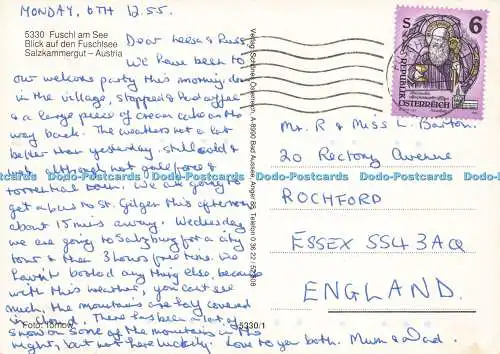 MONDAY, 6TH 12.55.
5330 Fuschl am See
Blick auf den Fuschlsee
Salzkammergut – Austria
Dear Leesa & Russ
We have been to
our welcome party this morning down
in the village, stopped & had coffee
& a large piece of cream cake on the
way back. The weather's not a lot
better than yesterday. still cold &
wet, although not gale force &
torrential down. We are going to
get a bus to St. Gilgen this afternoon
about 15 mins away. Wednesday
we are going to Salzburg for a city
tour & then 3 hours free time. We
haven't booked any thing else, because
with this weather, you can't see
much, the mountains are half covered
in cloud. There has been a lot of
snow on some of the mountains in the
night, but not here luckily. Love to you both. Mum & Dad.
Foto: Tornow
5330/1
Verlag Schöner, Österreich, A-9900 Bad Aussee, Anger 55, Telefon
S 6
REPUBLIK
ÖSTERREICH
Mr. R & Miss L. Barton.
20 Rectory Avenue
ROCHFORD
ESSEX SS4 3AQ
ENGLAND.
Dodo-Postcards Dodo-Postcards Dodo-Postcards Dodo-Postcards